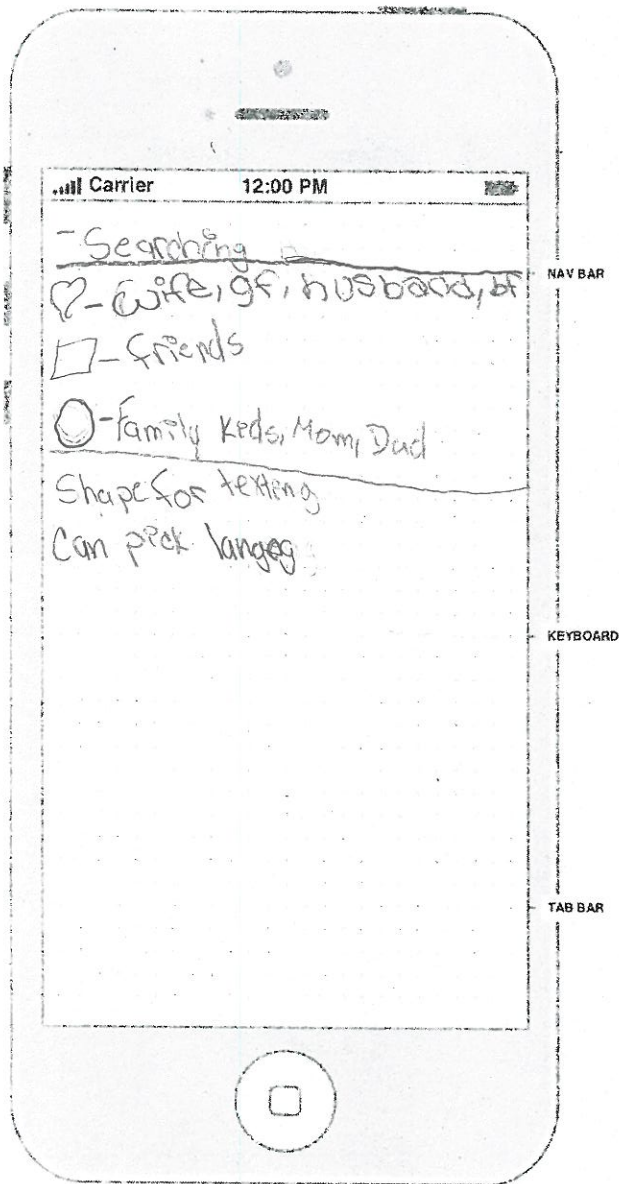 Carrier 12:00 PM
- Searching
NAV BAR
- wife, gf, husband, bf
- friends
- Family Kids, Mom, Dad
Shape for texting
Can pick langeg
KEYBOARD
TAB BAR